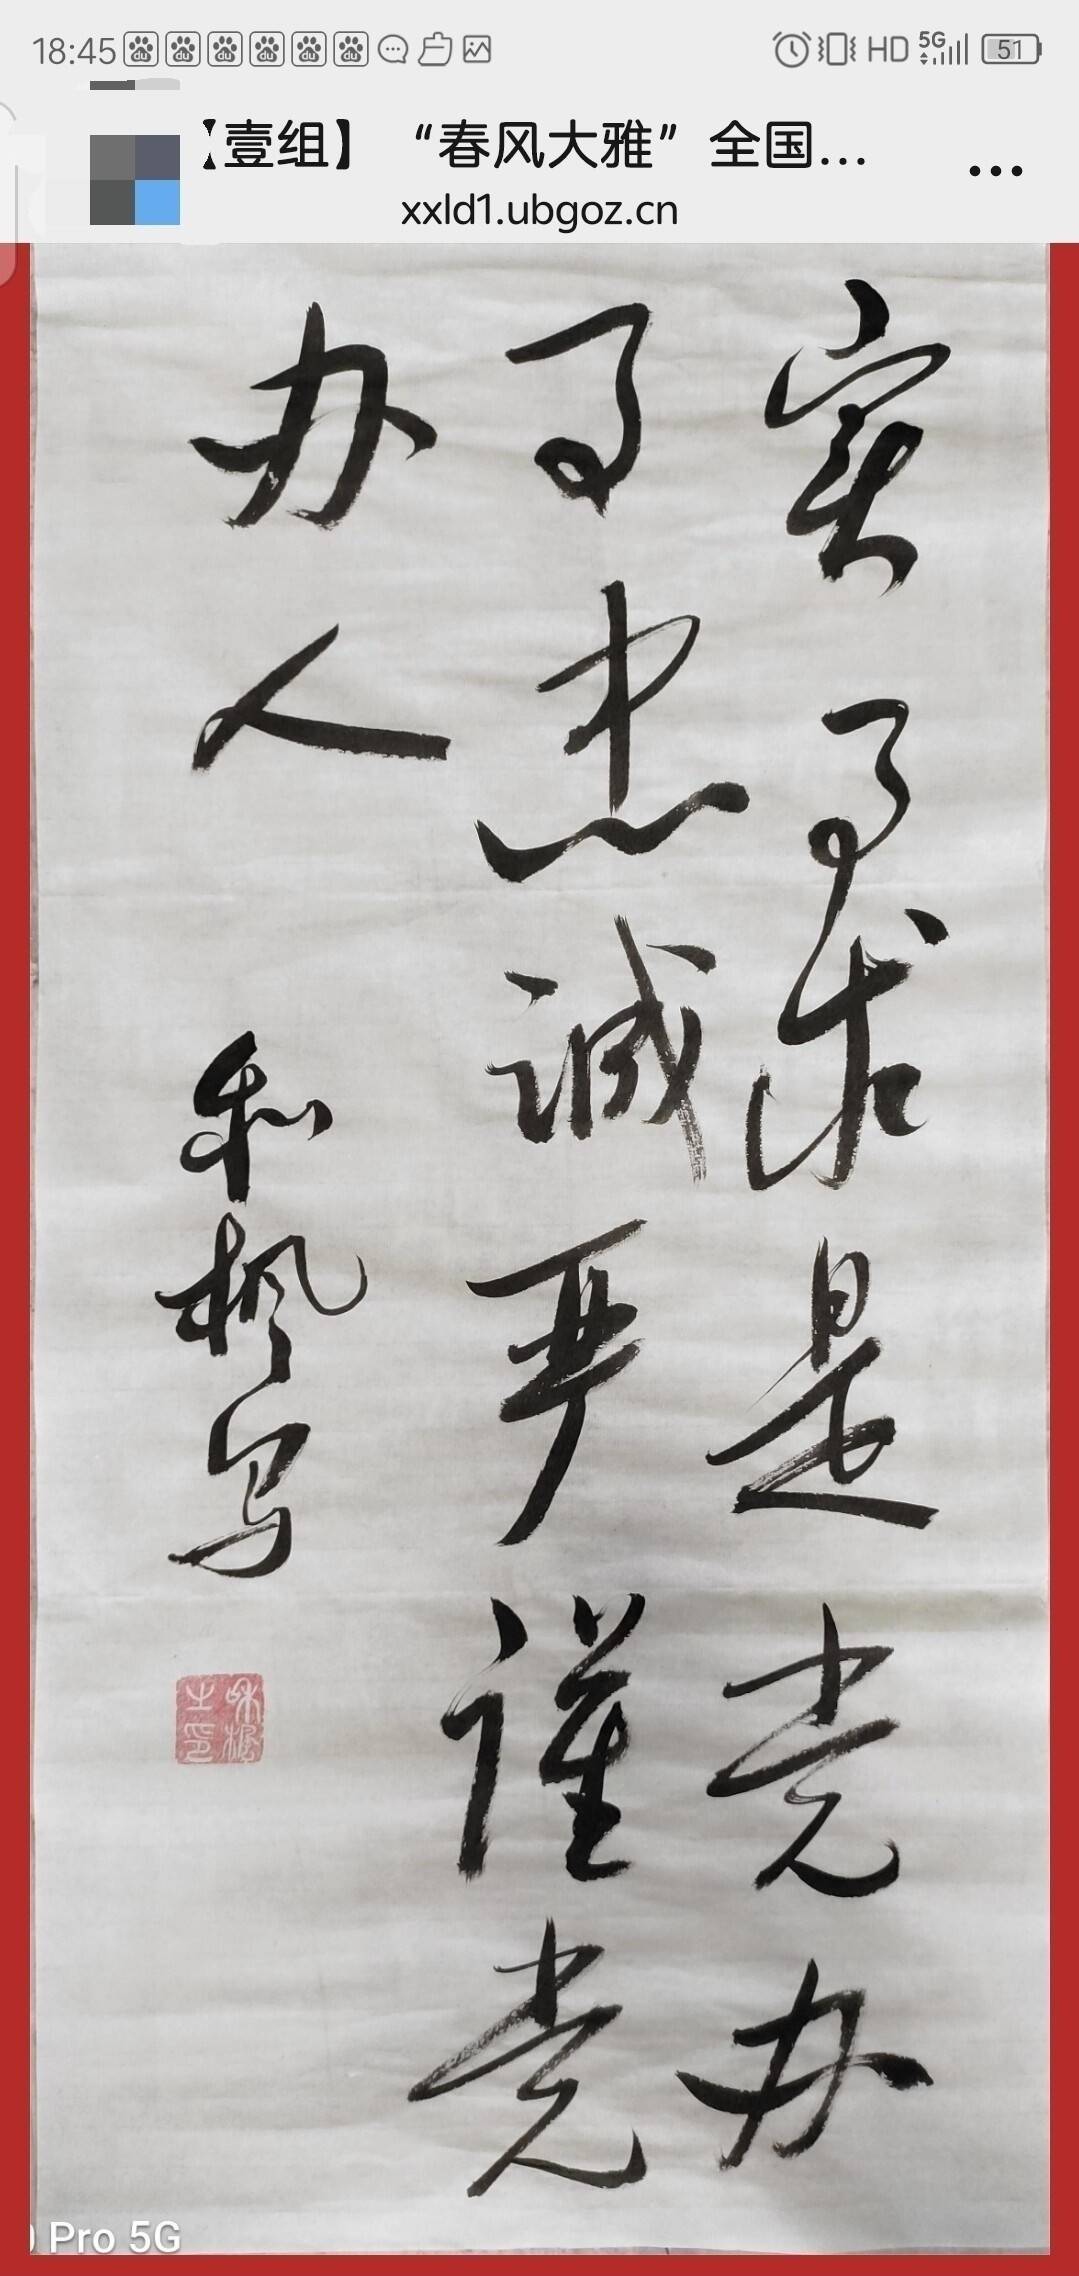 18:45
HD 5G 51
【壹组】 “春风大雅”全国...
xxld1.ubgoz.cn
实事求是党办
事忠诚严谨党
办人
和枫写
和枫之印
Pro 5G